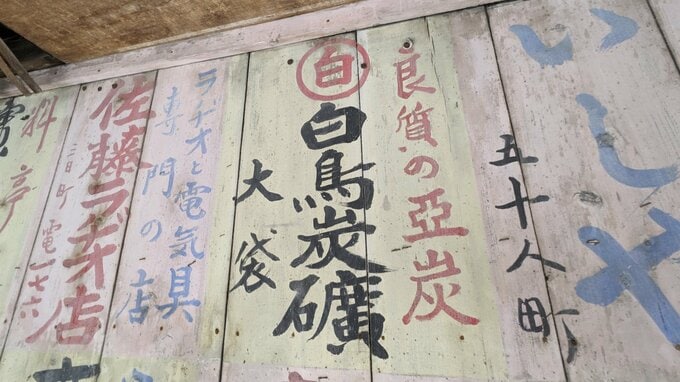 いしや
五十人町
良質の亜炭
白
白鳥炭礦
大袋
ラヂオと電気具
専門の店
佐藤ラヂオ店
三日町 電一七六
料亭